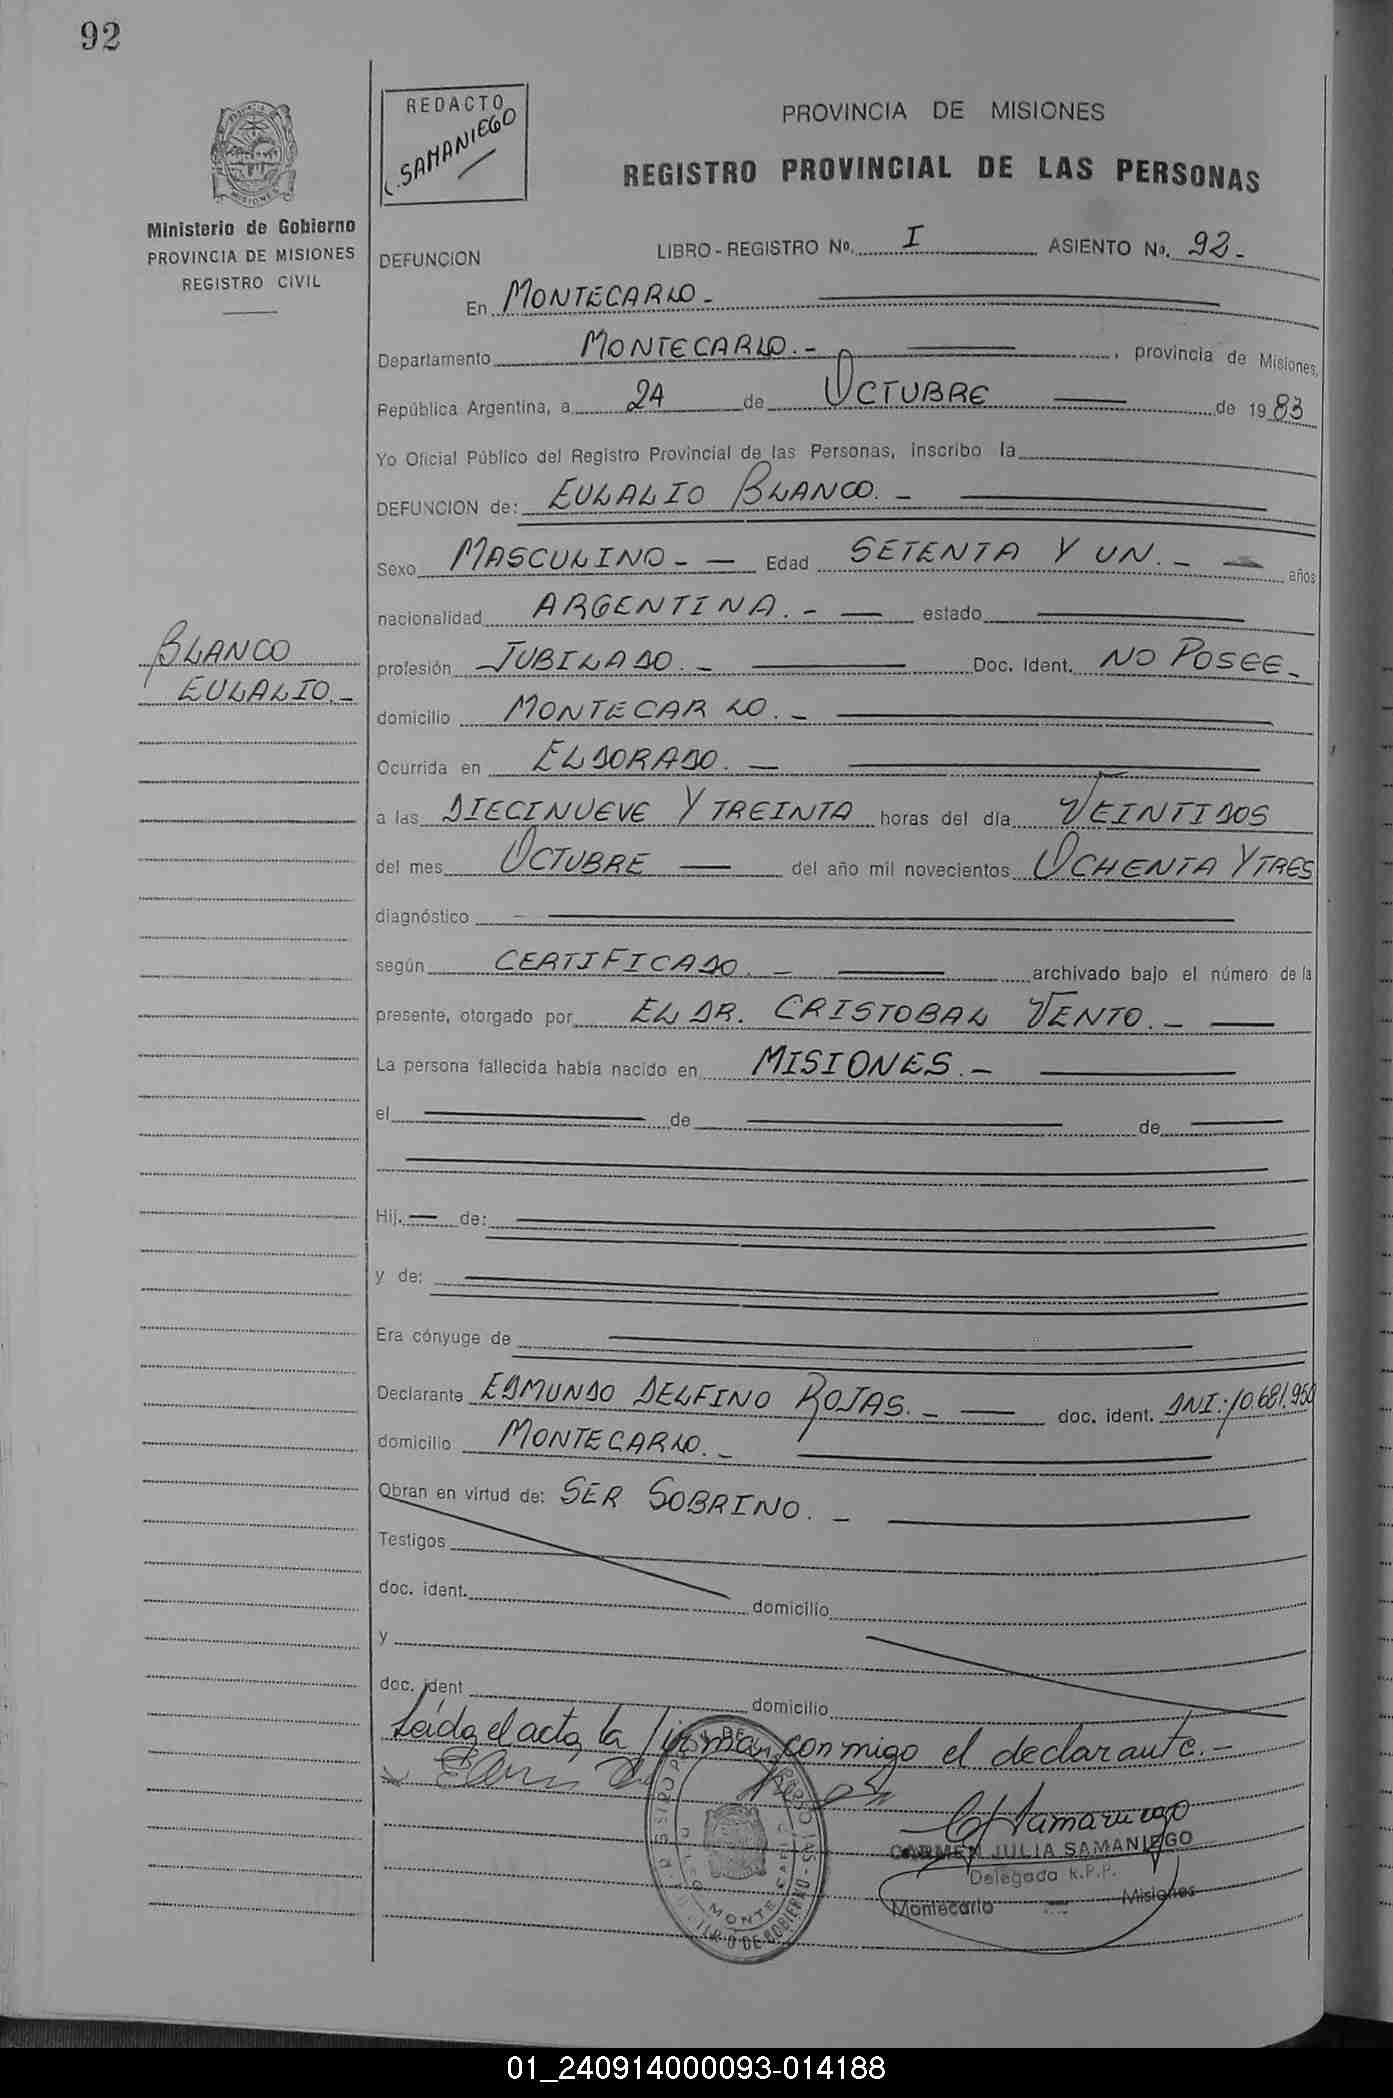 92
REDACTO
C. SAMANIEGO
PROVINCIA DE MISIONES
REGISTRO PROVINCIAL DE LAS PERSONAS
Ministerio de Gobierno
PROVINCIA DE MISIONES
REGISTRO CIVIL
DEFUNCION LIBRO - REGISTRO No. I ASIENTO No. 92.-
En MONTECARLO.-
Departamento MONTECARLO.- , provincia de Misiones,
República Argentina, a 24 de OCTUBRE de 1983
Yo Oficial Público del Registro Provincial de las Personas, inscribo la
DEFUNCION de: EULALIO BLANCO.-
Sexo MASCULINO.- Edad SETENTA Y UN.- años
nacionalidad ARGENTINA.- estado
BLANCO
EULALIO.-
profesión JUBILADO.- Doc. Ident. NO POSEE.-
domicilio MONTECARLO.-
Ocurrida en ELDORADO.-
a las DIECINUEVE Y TREINTA horas del día VEINTIDOS
del mes OCTUBRE del año mil novecientos OCHENTA Y TRES
diagnóstico
según CERTIFICADO.- archivado bajo el número de la
presente, otorgado por EL DR. CRISTOBAL VENTO.-
La persona fallecida había nacido en MISIONES.-
el de de
Hij. de:
y de:
Era cónyuge de
Declarante EDMUNDO DELFINO ROJAS.- doc. ident. DNI: 10.681.950
domicilio MONTECARLO.-
Obran en virtud de: SER SOBRINO.-
Testigos
doc. ident. domicilio
y
doc. ident domicilio
Leída el acta, la firman conmigo el declarante.-
CARMEN JULIA SAMANIEGO
Delegada R.P.P.
Montecarlo Misiones
01_240914000093-014188